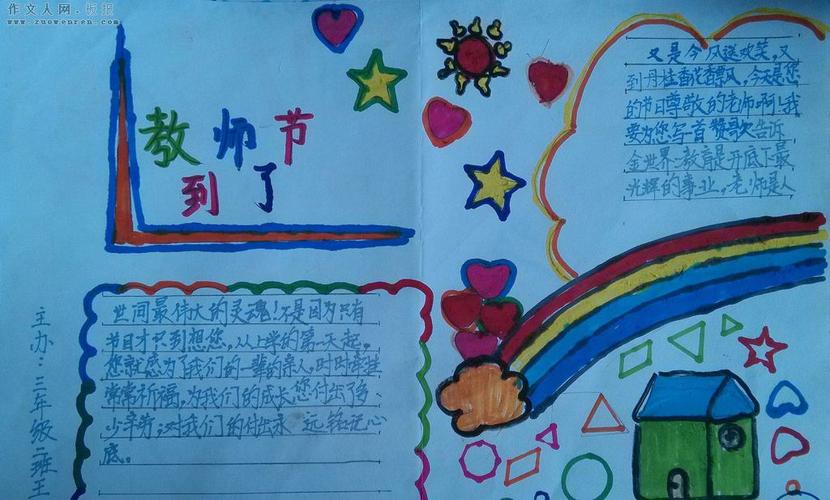 作文人网·板报
www.zuowenren.com
教师节
到了
又是今风送欢笑,又
到丹桂香花香飘风,今天是您
的节日尊敬的老师啊!我
要为您写首赞歌欠告诉
金世界教育是开底下最
光辉的事业,老师是人
世间最伟大的灵魂!不是因为只有
节目才只到想您,从上学的第一天起,
您就感为了我们的一辈的亲人,时时牵挂
常常祈福,为我们的成长您付出了多
少辛劳,对我们的付出永远铭记心
底。
主办:三年级二班王